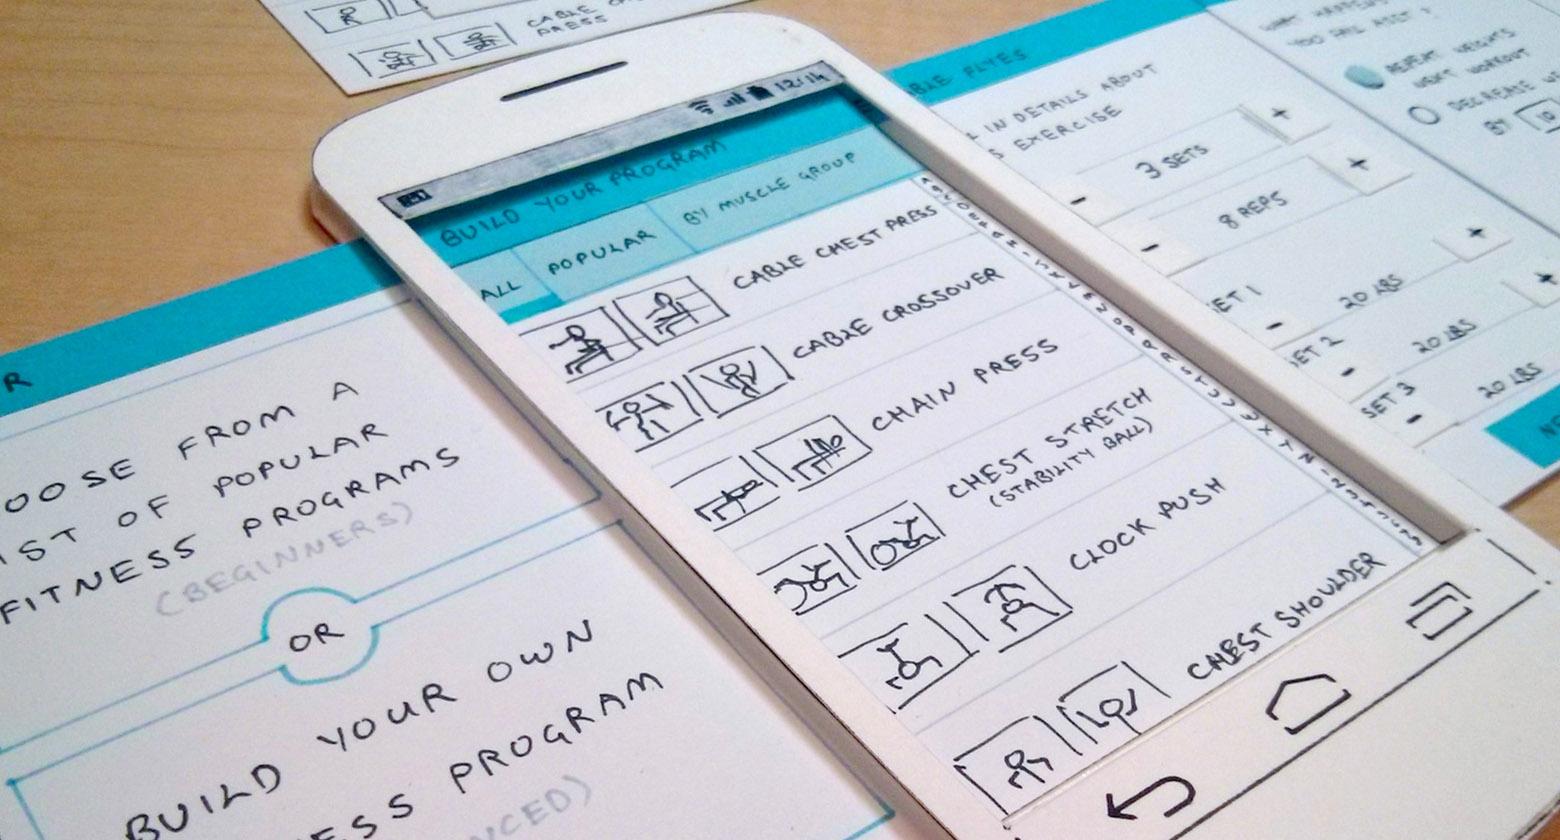 CABLE
PRESS
12:14
BUILD YOUR PROGRAM
ALL
POPULAR
BY MUSCLE GROUP
CABLE CHEST PRESS
CABLE CROSSOVER
CHAIN PRESS
CHEST STRETCH
(STABILITY BALL)
CLOCK PUSH
CHEST SHOULDER
R
OOSE FROM A
IST OF POPULAR
FITNESS PROGRAMS
(BEGINNERS)
OR
BUILD YOUR OWN
ESS PROGRAM
NCED)
ABLE FLYES
L IN DETAILS ABOUT
S EXERCISE
- 3 SETS +
- 8 REPS +
ET 1 - 20 LBS +
ET 2 - 20 LBS +
SET 3 - 20 LBS
WHAT HAPPENS
YOU FAIL
REPEAT WEIGHTS
NEXT WORKOUT
DECREASE
BY 10